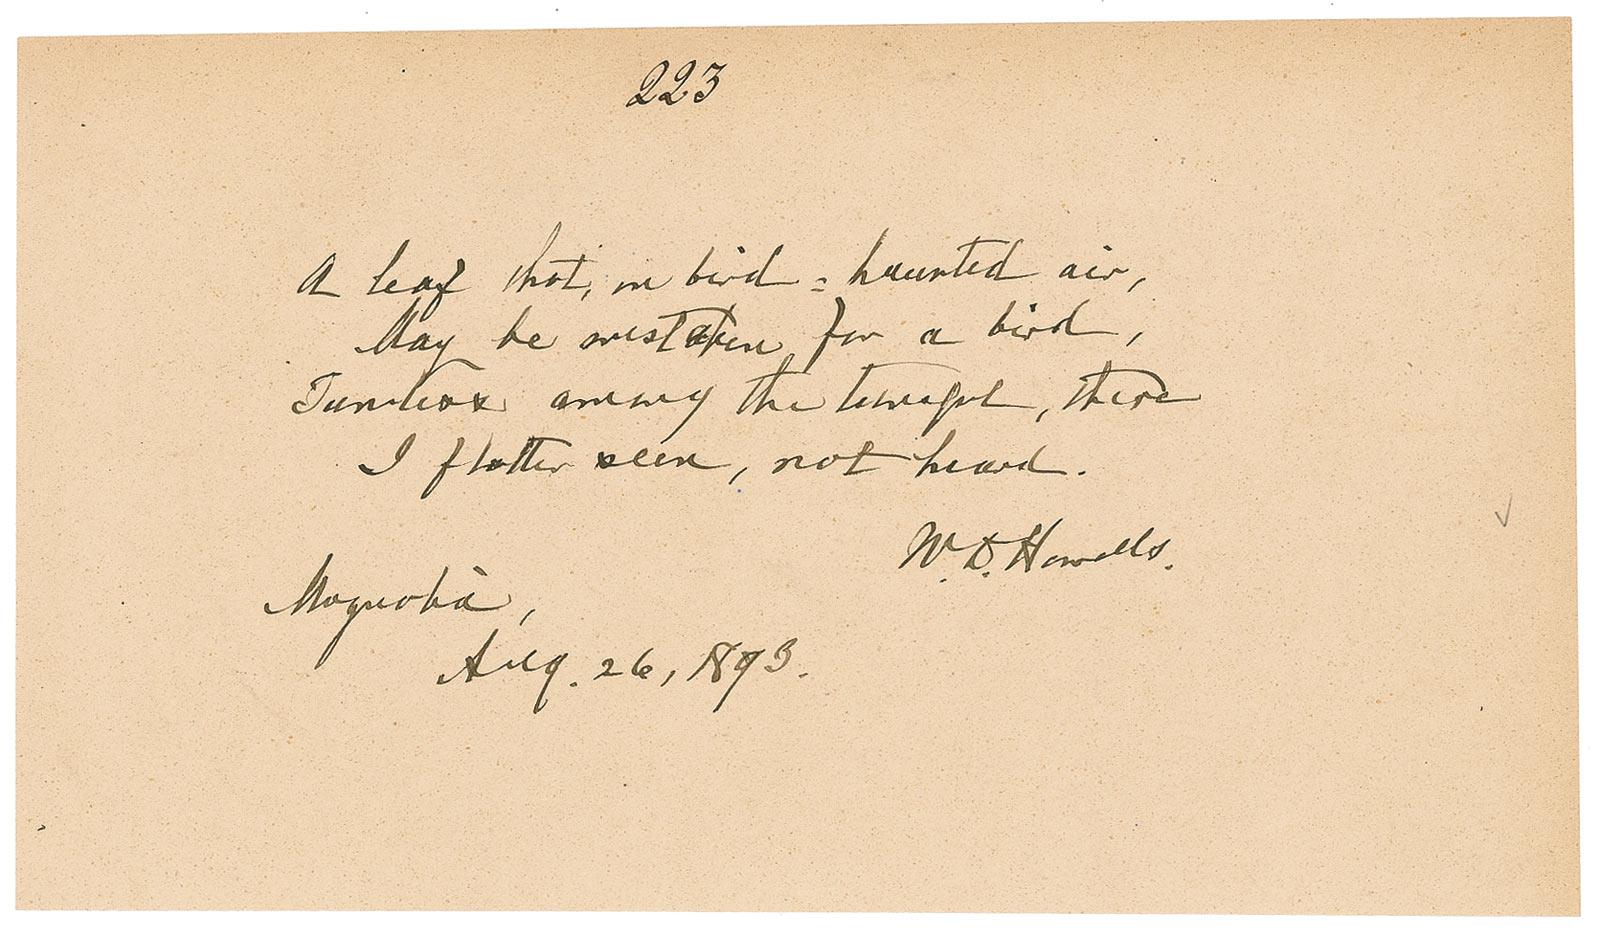 223
A leaf that, in bird-haunted air,
May be mistaken for a bird,
Tuneless among the tuneful, there
I flutter seen, not heard.
W. D. Howells.
Magnolia,
Aug. 26, 1893.